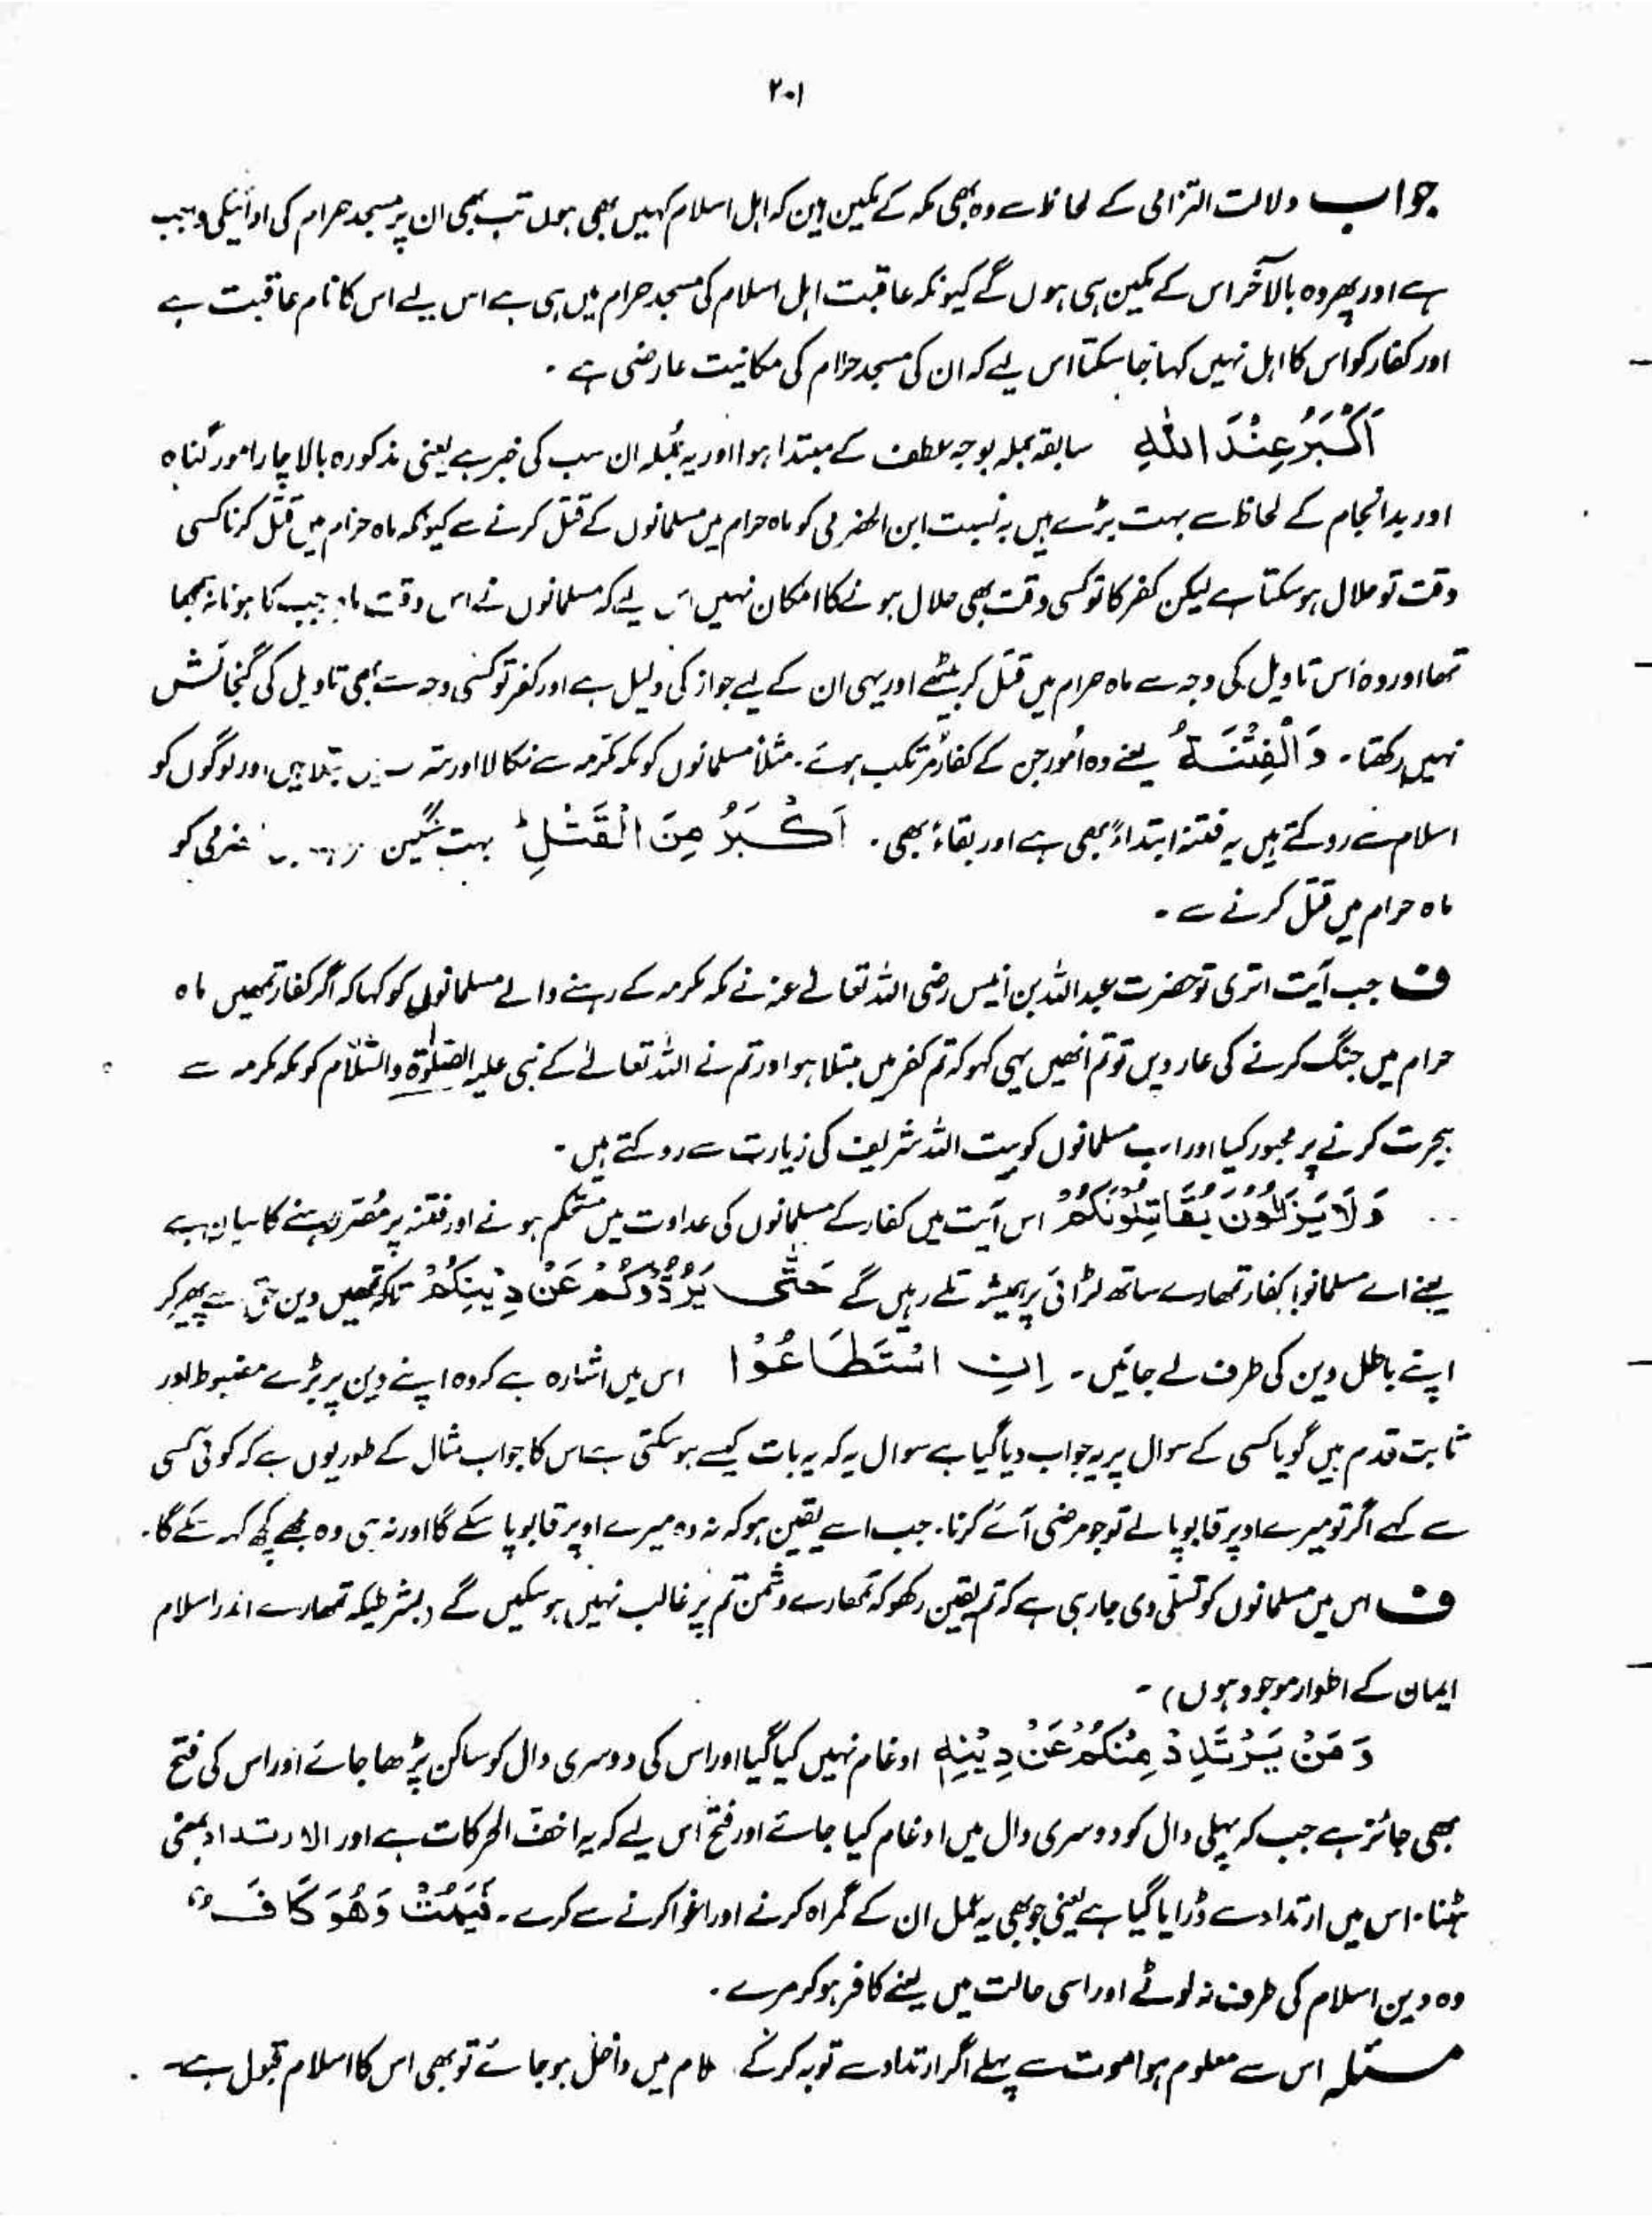 ۲۰۱
جواب دلالت التزامی کے لحاظ سے وہ بھی مکہ کے مکین ہیں کہ اہل اسلام کہیں بھی ہوں تب بھی ان پر مسجد حرام کی ادائیگی واجب
ہے اور پھر وہ بالآخر اس کے مکین ہی ہوں گے کیونکہ عاقبت اہل اسلام کی مسجد حرام میں ہی ہے اس لیے اس کا نام عاقبت ہے
اور کفار کو اس کا اہل نہیں کہا جا سکتا اس لیے کہ ان کی مسجد حرام کی مکانیت عارضی ہے ۔
اَکْبَرُ عِنْدَ اللّٰہِ سابقہ جملہ بوجہ عطف کے مبتدا ہوا اور یہ جُملہ ان سب کی خبر ہے یعنی مذکورہ بالا چار امور گناہ
اور بد انجام کے لحاظ سے بہت بڑے ہیں بہ نسبت ابن الحضرمی کو ماہ حرام میں مسلمانوں کے قتل کرنے سے کیونکہ ماہ حرام میں قتل کرنا کسی
وقت تو حلال ہو سکتا ہے لیکن کفر کا تو کسی وقت بھی حلال ہونے کا امکان نہیں اس لیے کہ مسلمانوں نے اس وقت ماہ رجب کا ہونا نہ سمجھا
تھا اور وہ اس تاویل کی وجہ سے ماہ حرام میں قتل کر بیٹھے اور یہی ان کے لیے جواز کی دلیل ہے اور کفر تو کسی وجہ سے بھی تاویل کی گنجائش
نہیں رکھتا ۔ وَالْفِتْنَۃُ یعنے وہ اُمور جن کے کفار مُرتکب ہوئے ۔ مثلاً مسلمانوں کو مکہ مکرّمہ سے نکالا اور مبتلا ہیں اور لوگوں کو
اسلام سے روکتے ہیں یہ فتنہ ابتداءً بھی ہے اور بقاءً بھی ۔ اَکْبَرُ مِنَ الْقَتْلِ ط بہت سنگین کو
ماہ حرام میں قتل کرنے سے ۔
ف جب آیت اتری تو حضرت عبداللہ بن انیس رضی اللہ تعالےٰ عنہ نے مکہ مکرمہ کے رہنے والے مسلمانوں کو کہا کہ اگر کفار تمھیں ماہ
حرام میں جنگ کرنے کی عار دیں تو تم انھیں یہی کہو کہ تم کفر میں مبتلا ہو اور تم نے اللہ تعالےٰ کے نبی علیہ الصلوٰۃ والسّلام کو مکہ مکرمہ سے
ہجرت کرنے پر مجبور کیا اور اب مسلمانوں کو بیت اللہ شریف کی زیارت سے روکتے ہیں ۔
وَلَا یَزَالُوْنَ یُقَاتِلُوْنَکُمْ اس آیت میں کفار کے مسلمانوں کی عداوت میں مستحکم ہونے اور فتنہ پر مُصَر رہنے کا بیان ہے
یعنے اے مسلمانو! کفار تمھارے ساتھ لڑائی پر ہمیشہ تلے رہیں گے حَتّٰی یَرُدُّوْکُمْ عَنْ دِیْنِکُمْ تاکہ تمھیں دین حق سے پھیر کر
اپنے باطل دین کی طرف لے جائیں ۔ اِنِ اسْتَطَاعُوْا اس میں اشارہ ہے کہ وہ اپنے دین پر بڑے مضبوط اور
ثابت قدم ہیں گویا کسی کے سوال پر یہ جواب دیا گیا ہے سوال یہ کہ یہ بات کیسے ہو سکتی ہے اس کا جواب مثال کے طور یوں ہے کہ کوئی کسی
سے کہے اگر تو میرے اوپر قابو پا لے تو جو مرضی آئے کرنا ۔ جب اسے یقین ہو کہ نہ وہ میرے اوپر قابو پا سکے گا اور نہ ہی وہ مجھے کچھ کہہ سکے گا ۔
ف اس میں مسلمانوں کو تسلّی دی جا رہی ہے کہ تم یقین رکھو کہ تمھارے دشمن تم پر غالب نہیں ہو سکیں گے (بشرطیکہ تمھارے اندر اسلام
ایمان کے اطوار موجود ہوں) ۔
وَمَنْ یَّرْتَدِدْ مِنْکُمْ عَنْ دِیْنِہٖ ادغام نہیں کیا گیا اور اس کی دوسری دال کو ساکن پڑھا جائے اور اس کی فتح
بھی جائز ہے جب کہ پہلی دال کو دوسری دال میں ادغام کیا جائے اور فتح اس لیے کہ یہ اخف الحرکات ہے اور الارتداد بمعنی
ہٹنا ۔ اس میں ارتداد سے ڈرایا گیا ہے یعنی جو بھی یہ عمل ان کے گمراہ کرنے اور اغوا کرنے سے کرے ۔ فَیَمُتْ وَھُوَ کَافِرٌ
وہ دین اسلام کی طرف نہ لوٹے اور اسی حالت میں یعنے کافر ہو کر مرے ۔
مسئلہ اس سے معلوم ہوا موت سے پہلے اگر ارتداد سے توبہ کر کے اسلام میں داخل ہو جائے تو بھی اس کا اسلام قبول ہے ۔